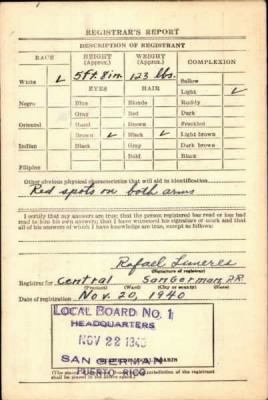 REGISTRAR'S REPORT
DESCRIPTION OF REGISTRANT
RACE HEIGHT (Approx.) WEIGHT (Approx.) COMPLEXION
White ✓ 5 ft. 8 in. 123 lbs. Sallow
EYES HAIR Light ✓
Negro Blue Blonde Ruddy
Gray Red Dark
Oriental Hazel Brown Freckled
Brown ✓ Black ✓ Light brown
Indian Black Gray Dark brown
Bald Black
Filipino
Other obvious physical characteristics that will aid in identification
Red spots on both arms
I certify that my answers are true; that the person registered has read or has had
read to him his own answers; that I have witnessed his signature or mark and that
all of his answers of which I have knowledge are true, except as follows:
Rafael
(Signature of registrar)
Registrar for Central San German, P.R.
(Precinct) (Ward) (City or county) (State)
Date of registration Nov. 20, 1940
LOCAL BOARD NO. 1
HEADQUARTERS
NOV 22 1940
SAN GERMAN
PUERTO RICO